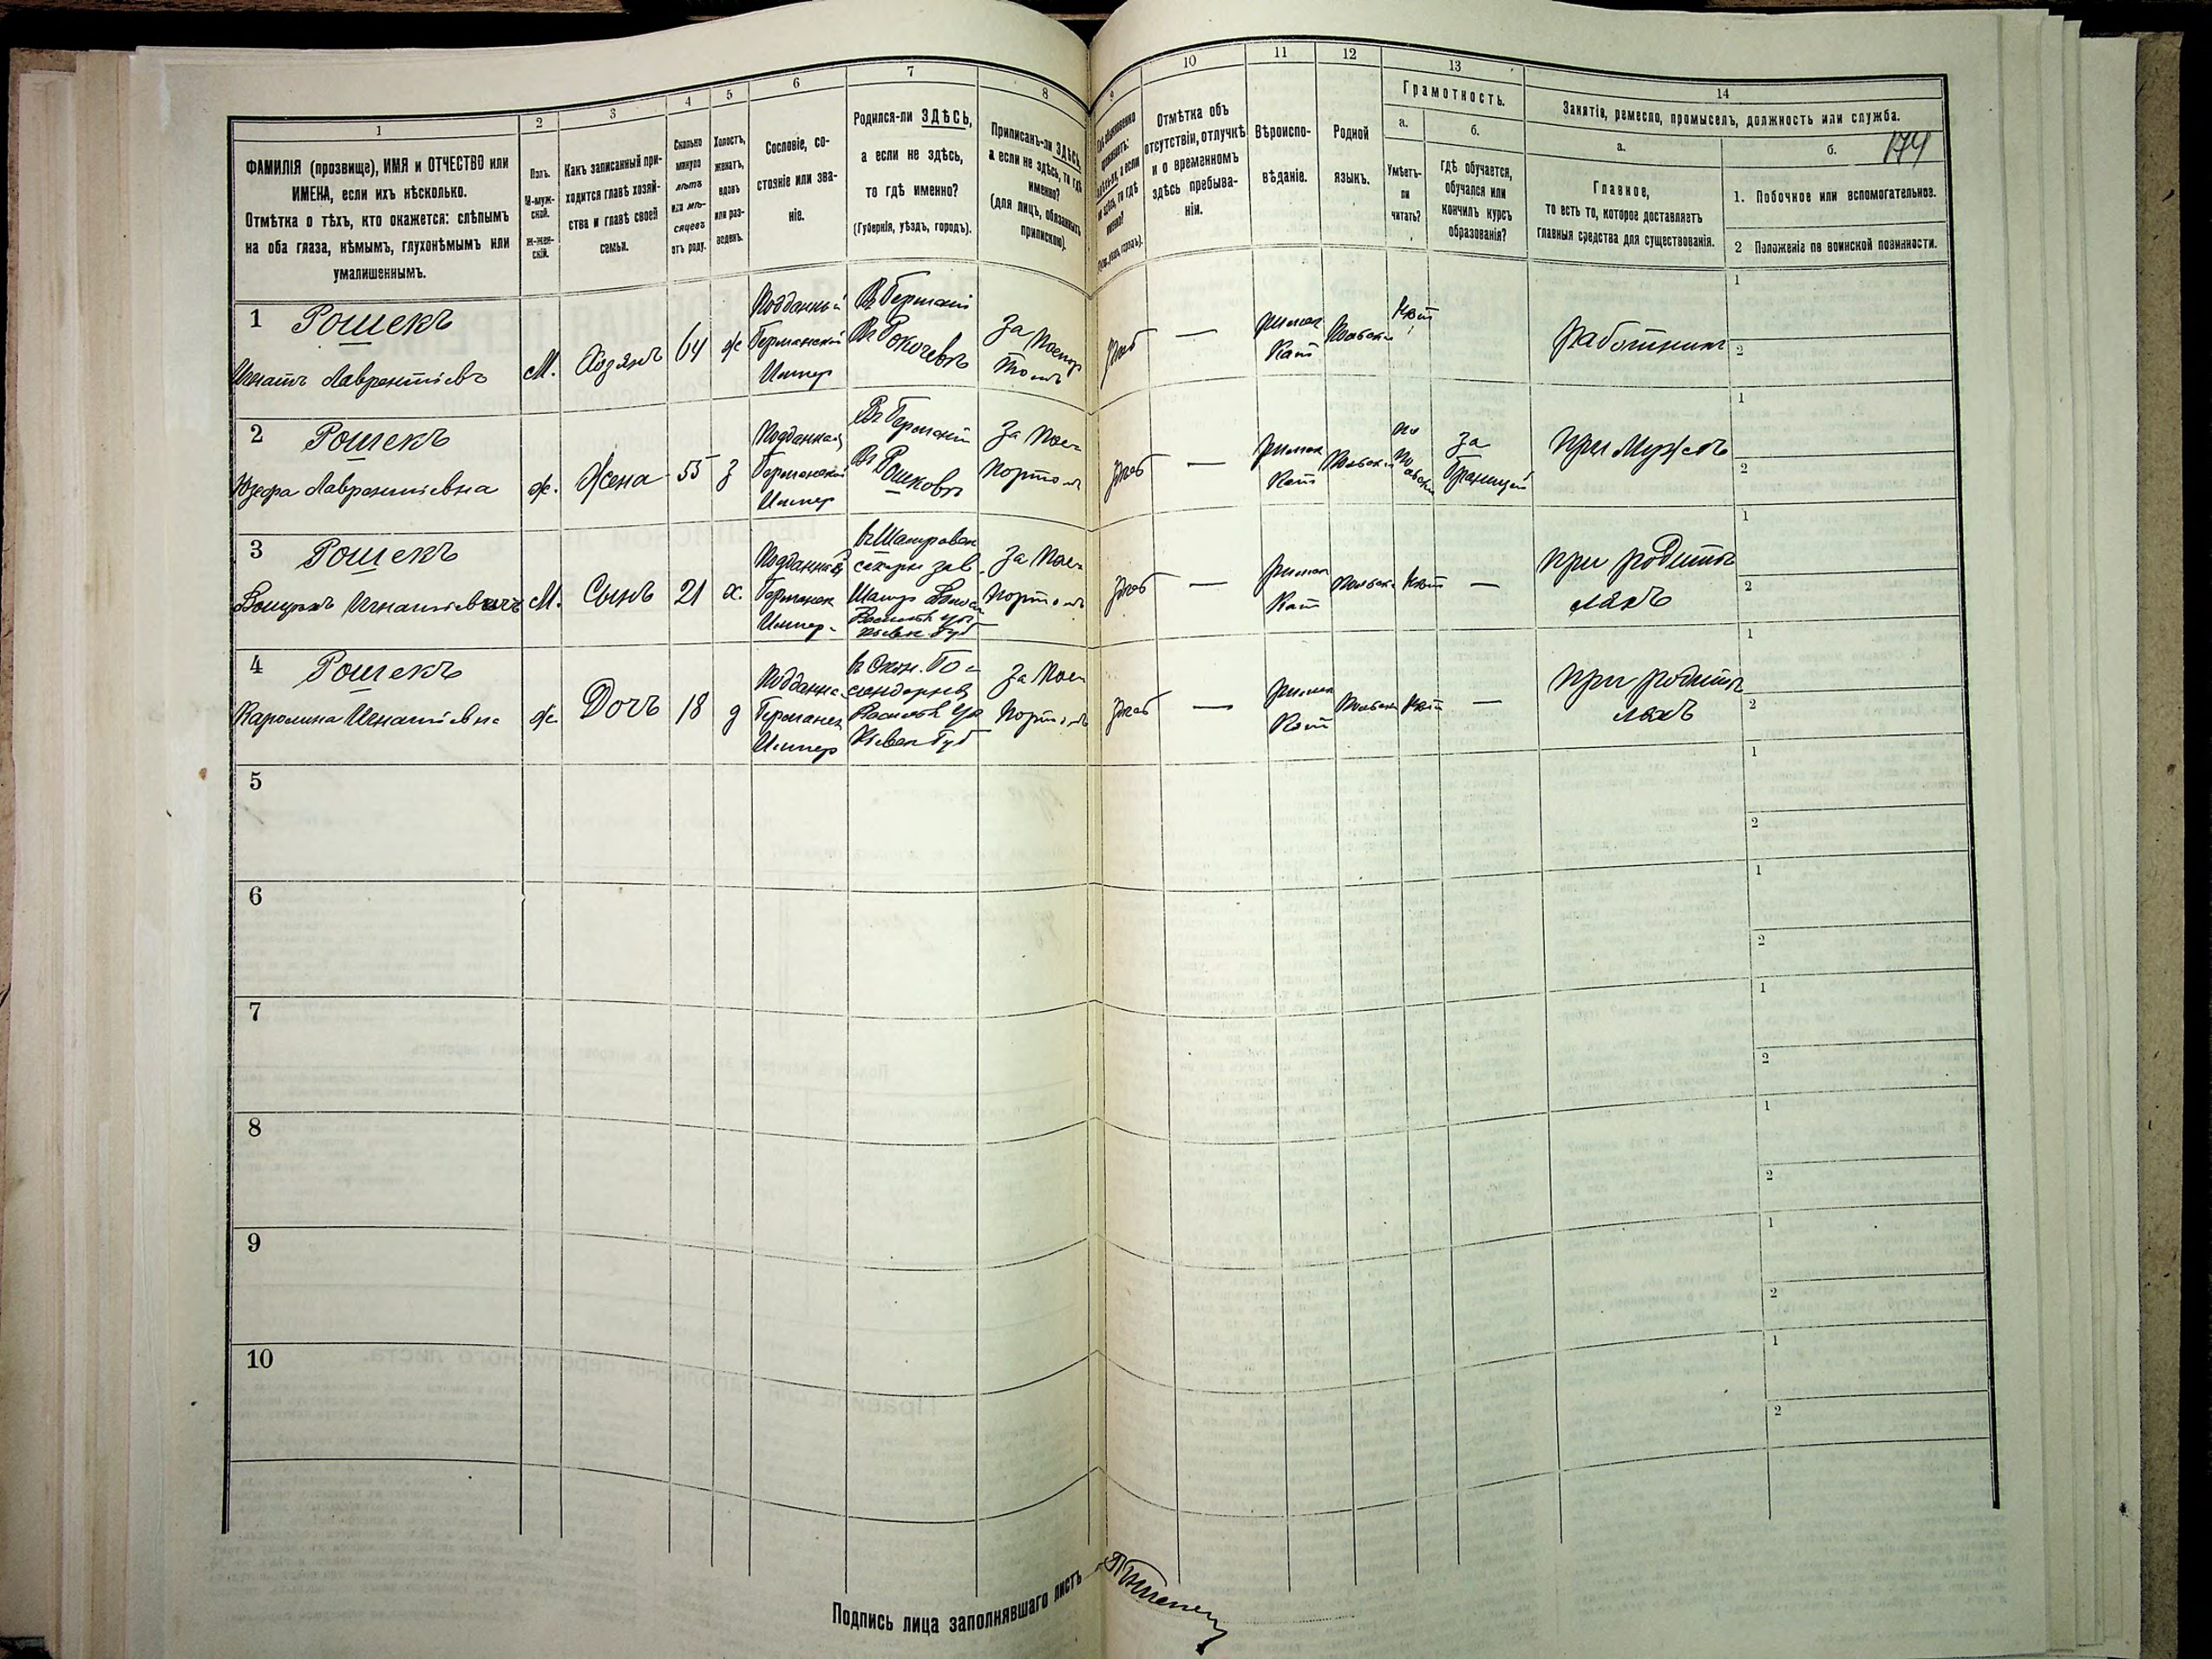 1
2
3
4
5
6
7
8
9
10
11
12
13
14
174
ФАМИЛІЯ (прозвище), ИМЯ и ОТЧЕСТВО или
ИМЕНА, если ихъ нѣсколько.
Отмѣтка о тѣхъ, кто окажется: слѣпымъ
на оба глаза, нѣмымъ, глухонѣмымъ или
умалишеннымъ.
Полъ.
М-муж-
ской.
ж-жен-
скій.
Какъ записанный при-
ходится главѣ хозяй-
ства и главѣ своей
семьи.
Сколько
минуло
лѣтъ
или мѣ-
сяцевъ
отъ роду.
Холостъ,
женатъ,
вдовъ
или раз-
веденъ.
Сословіе, со-
стояніе или зва-
ніе.
Родился-ли ЗДѢСЬ,
а если не здѣсь,
то гдѣ именно?
(Губернія, уѣздъ, городъ).
Приписанъ-ли ЗДѢСЬ,
а если не здѣсь, то гдѣ
именно?
(для лицъ, обязанныхъ
припискою).
Отмѣтка объ
отсутствіи, отлучкѣ
и о временномъ
здѣсь пребыва-
ніи.
Вѣроиспо-
вѣданіе.
Родной
языкъ.
Грамотность.
а.
Умѣетъ-
ли
читать?
б.
гдѣ обучается,
обучался или
кончилъ курсъ
образованія?
Занятія, ремесло, промыселъ, должность или служба.
а.
Главное,
то есть то, которое доставляетъ
главныя средства для существованія.
б.
1. Побочное или вспомогательное.
2 Положеніе по воинской повинности.
1 Рошекъ
Игнатъ Лаврентіевъ
М.
Хозяинъ
64
ж
Подданный
Германской
Импер
Въ Германіи
За Паспор
томъ
—
римск
Кат
Польскі
Нѣт
Работникъ
1
2
2 Рошекъ
Юзефа Лаврентіевна
ж.
Жена
55
з
Подданная
Германской
Импер
Въ Германіи
Въ Рошковъ
За Пас-
портом
—
римск
Кат
Польскі
по
польски
За
Границей
при Мужѣ
1
2
3 Рошекъ
Игнатіевичъ
М.
Сынъ
21
х.
Подданный
Германск
Импер.
Васильк уѣз
Кіевск губ
За Пас-
портомъ
—
римск
Кат
Польскі
Нѣт
—
при родите
ляхъ
1
2
4 Рошекъ
Каролина Игнатіевна
ж.
Дочъ
18
д
Подданна
Германск
Импер
Васильк уѣз
Кіевск губ
За Пас-
портомъ
—
римск
Кат
Польскі
Нѣт
—
при родите
ляхъ
1
2
5
1
2
6
1
2
7
1
2
8
1
2
9
1
2
10
1
2
Подпись лица заполнявшаго листъ